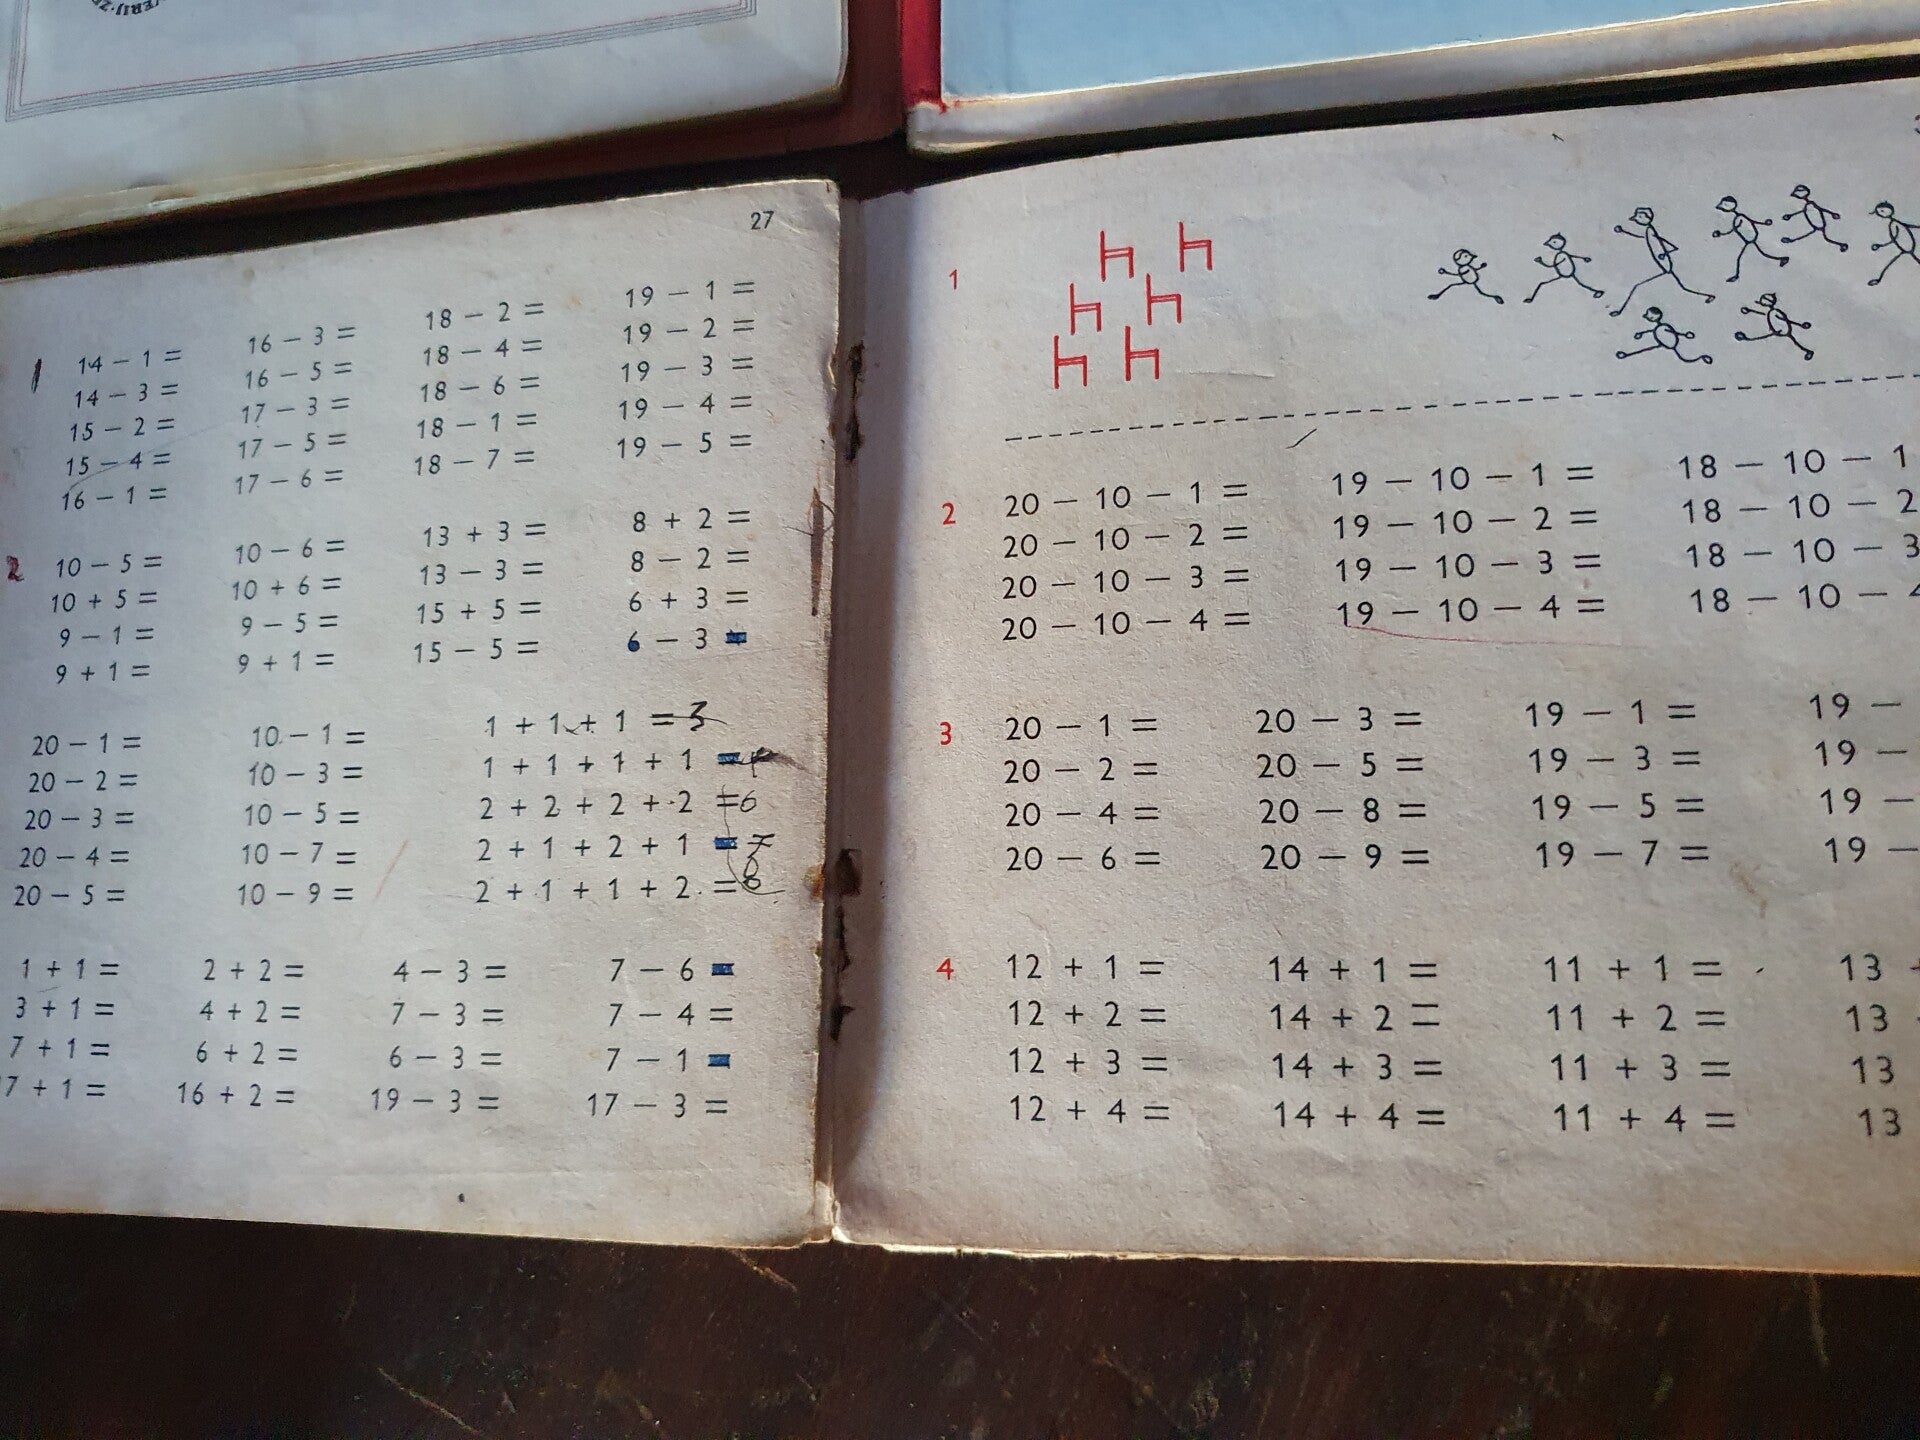 27
1 14 – 1 = 16 – 3 = 18 – 2 = 19 – 1 =
14 – 3 = 16 – 5 = 18 – 4 = 19 – 2 =
15 – 2 = 17 – 3 = 18 – 6 = 19 – 3 =
15 – 4 = 17 – 5 = 18 – 1 = 19 – 4 =
16 – 1 = 17 – 6 = 18 – 7 = 19 – 5 =
2 10 – 5 = 10 – 6 = 13 + 3 = 8 + 2 =
10 + 5 = 10 + 6 = 13 – 3 = 8 – 2 =
9 – 1 = 9 – 5 = 15 + 5 = 6 + 3 =
9 + 1 = 9 + 1 = 15 – 5 = 6 – 3 =
20 – 1 = 10 – 1 = 1 + 1 + 1 = 3
20 – 2 = 10 – 3 = 1 + 1 + 1 + 1 =
20 – 3 = 10 – 5 = 2 + 2 + 2 + 2 = 6
20 – 4 = 10 – 7 = 2 + 1 + 2 + 1 = 7
20 – 5 = 10 – 9 = 2 + 1 + 1 + 2 = 6
1 + 1 = 2 + 2 = 4 – 3 = 7 – 6 =
3 + 1 = 4 + 2 = 7 – 3 = 7 – 4 =
7 + 1 = 6 + 2 = 6 – 3 = 7 – 1 =
7 + 1 = 16 + 2 = 19 – 3 = 17 – 3 =
1
2 20 – 10 – 1 = 19 – 10 – 1 = 18 – 10 – 1
20 – 10 – 2 = 19 – 10 – 2 = 18 – 10 – 2
20 – 10 – 3 = 19 – 10 – 3 = 18 – 10 – 3
20 – 10 – 4 = 19 – 10 – 4 = 18 – 10 – 4
3 20 – 1 = 20 – 3 = 19 – 1 = 19 –
20 – 2 = 20 – 5 = 19 – 3 = 19 –
20 – 4 = 20 – 8 = 19 – 5 = 19 –
20 – 6 = 20 – 9 = 19 – 7 = 19 –
4 12 + 1 = 14 + 1 = 11 + 1 = 13 +
12 + 2 = 14 + 2 = 11 + 2 = 13
12 + 3 = 14 + 3 = 11 + 3 = 13
12 + 4 = 14 + 4 = 11 + 4 = 13